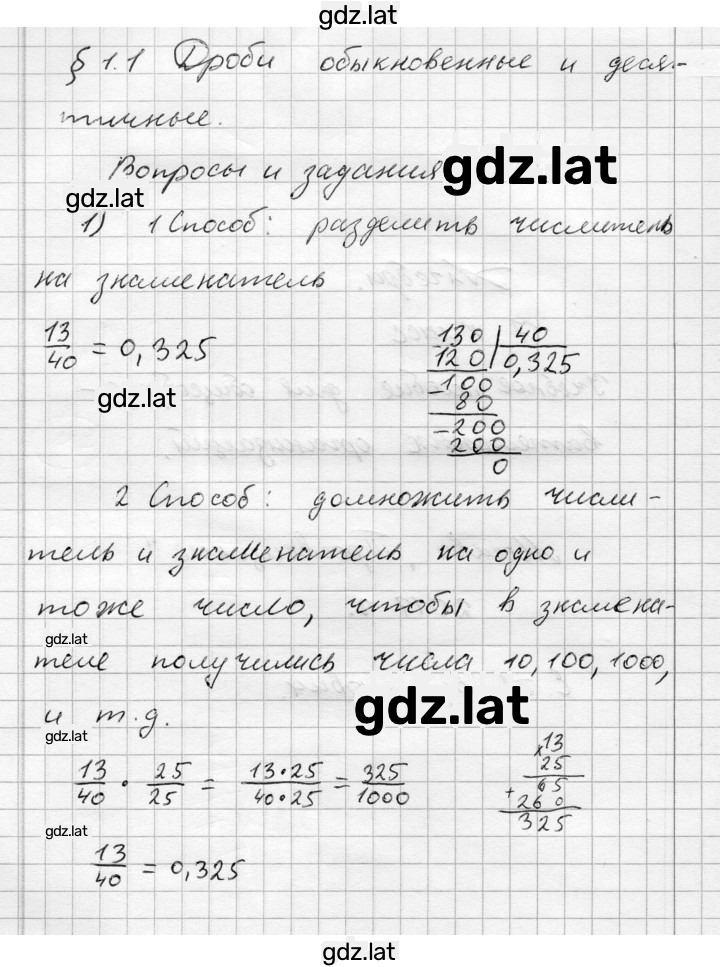 gdz.lat
§ 1.1 Дроби обыкновенные и деся-
тичные.
Вопросы и задания
gdz.lat
gdz.lat
1) 1 Способ: разделить числитель
на знаменатель
13/40 = 0,325
130 | 40
120 | 0,325
-100
80
-200
200
0
gdz.lat
2 Способ: домножить числи-
тель и знаменатель на одно и
тоже число, чтобы в знамена-
gdz.lat
теле получились числа 10, 100, 1000,
и т.д.
gdz.lat
gdz.lat
13/40 · 25/25 = 13·25/40·25 = 325/1000
×13
25
65
+260
325
gdz.lat
13/40 = 0,325
gdz.lat